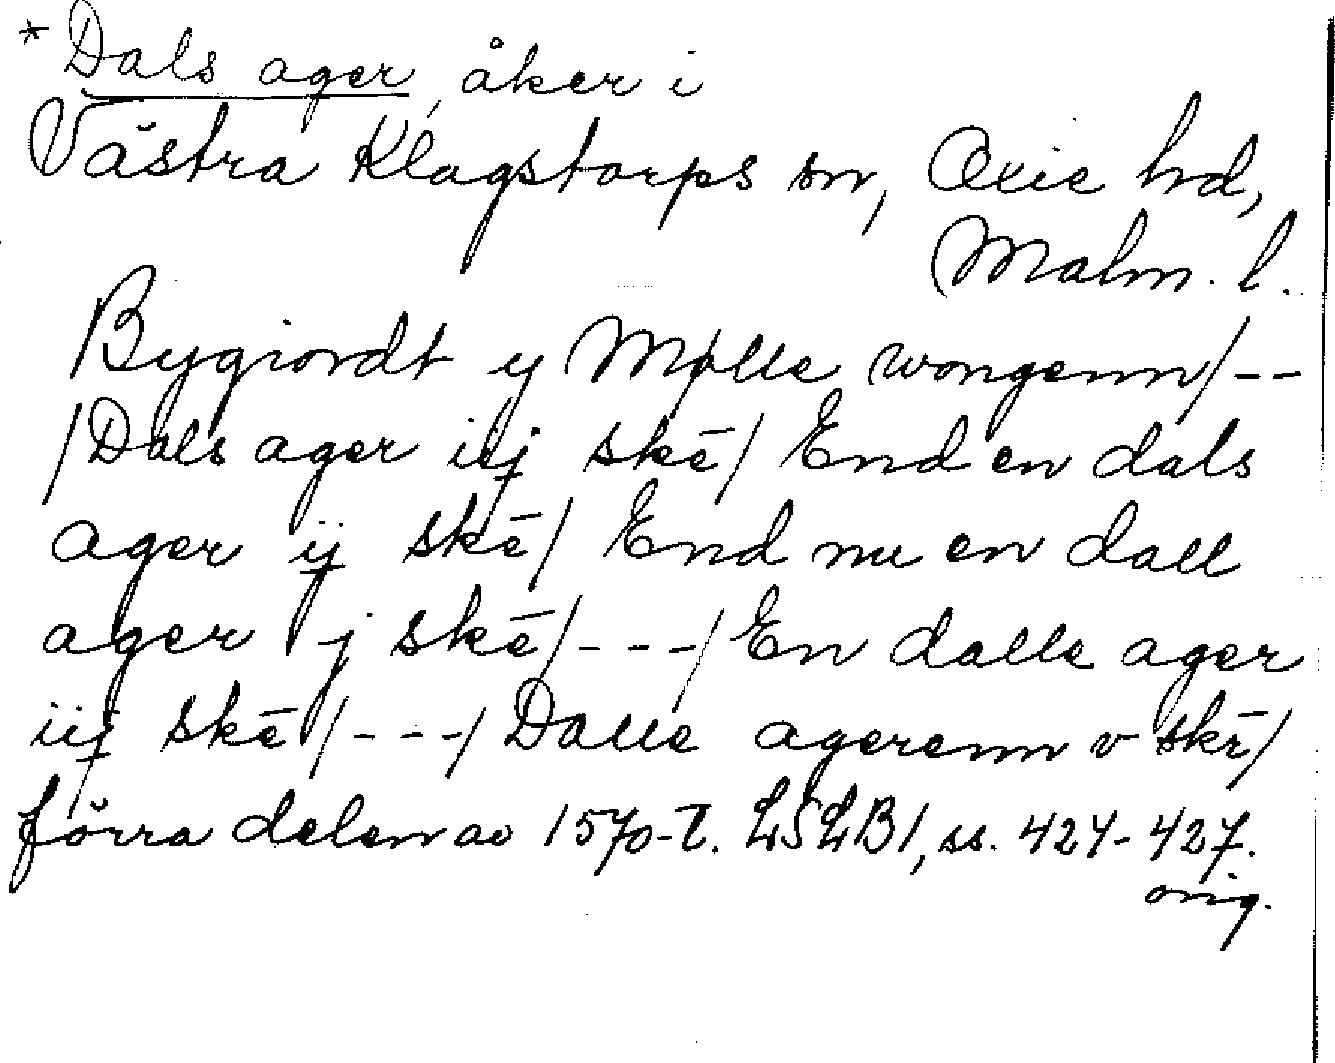 *Dals ager, åker i
Västra Klagstorps sn, Oxie hd,
Malm. l.
Bygiordt y Mølle wongenn/--
/Dals ager iij skē/ End en dals
ager ij skē/ End nu en dall
ager j skē/---/ En dalle ager
iij skē/---/ Dalle agerenn v skē/
förra delen av 1570-t. LSLB1, ss. 424-427.
orig.